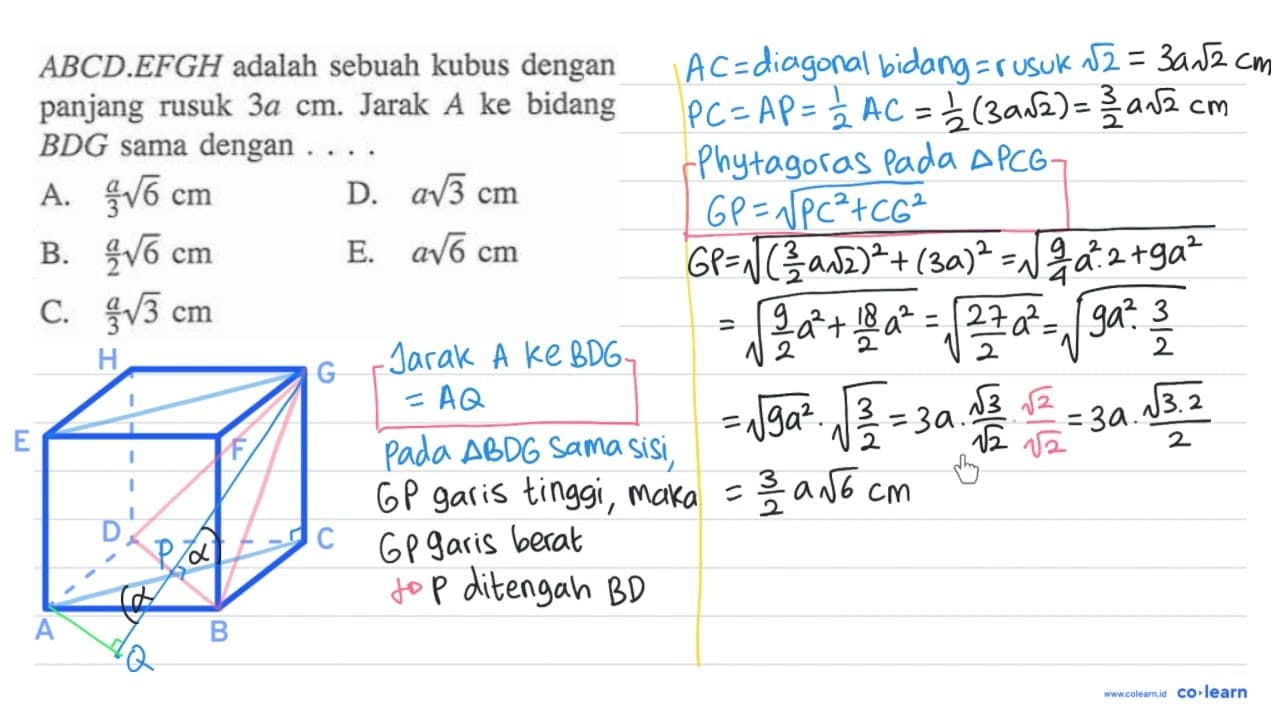 ABCD.EFGH adalah sebuah kubus dengan
panjang rusuk 3a cm. Jarak A ke bidang
BDG sama dengan . . . .
A. a/3 √6 cm
B. a/2 √6 cm
C. a/3 √3 cm
D. a√3 cm
E. a√6 cm
H
G
E
F
D
C
P
α
α
A
B
Q
Jarak A ke BDG
= AQ
Pada ΔBDG sama sisi,
GP garis tinggi, maka
GP garis berat
↳ P ditengah BD
AC = diagonal bidang = rusuk √2 = 3a√2 cm
PC = AP = 1/2 AC = 1/2 (3a√2) = 3/2 a√2 cm
Phytagoras Pada ΔPCG
GP = √(PC² + CG²)
GP = √((3/2 a√2)² + (3a)²) = √(9/4 a².2 + 9a²)
= √(9/2 a² + 18/2 a²) = √(27/2 a²) = √(9a². 3/2)
= √9a² . √(3/2) = 3a . √3/√2 . √2/√2 = 3a . √3.2/2
= 3/2 a√6 cm
www.colearn.id co·learn